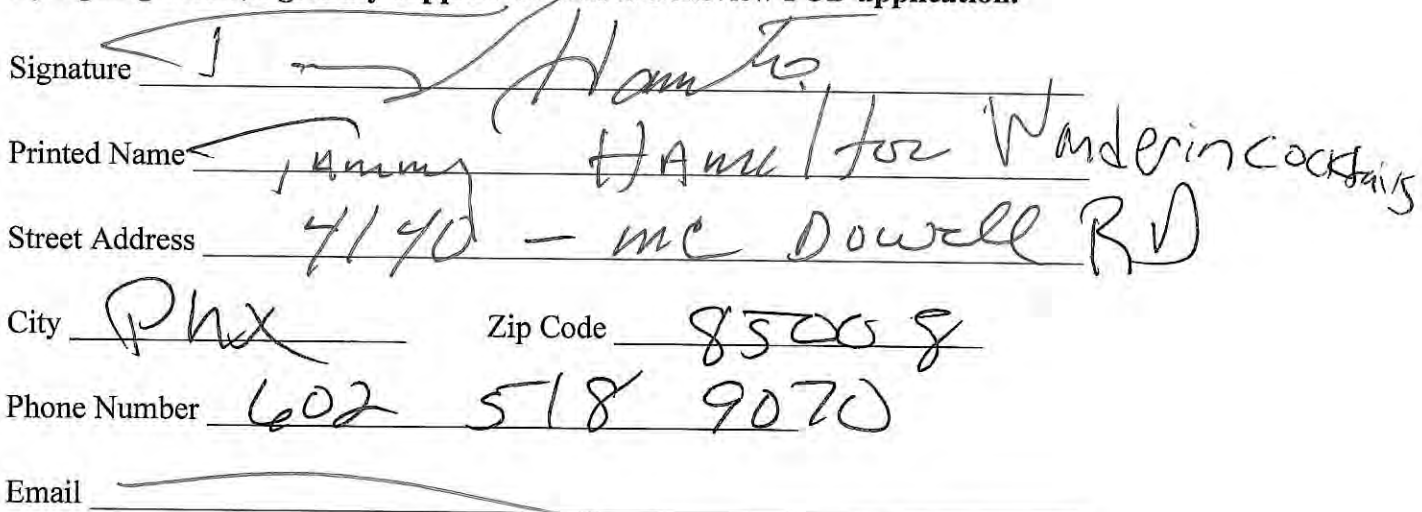 application.
Signature
Printed Name Tammy Hamilton Wanderin cocktails
Street Address 4140 - mc Dowell RD
City Phx Zip Code 85008
Phone Number 602 518 9070
Email